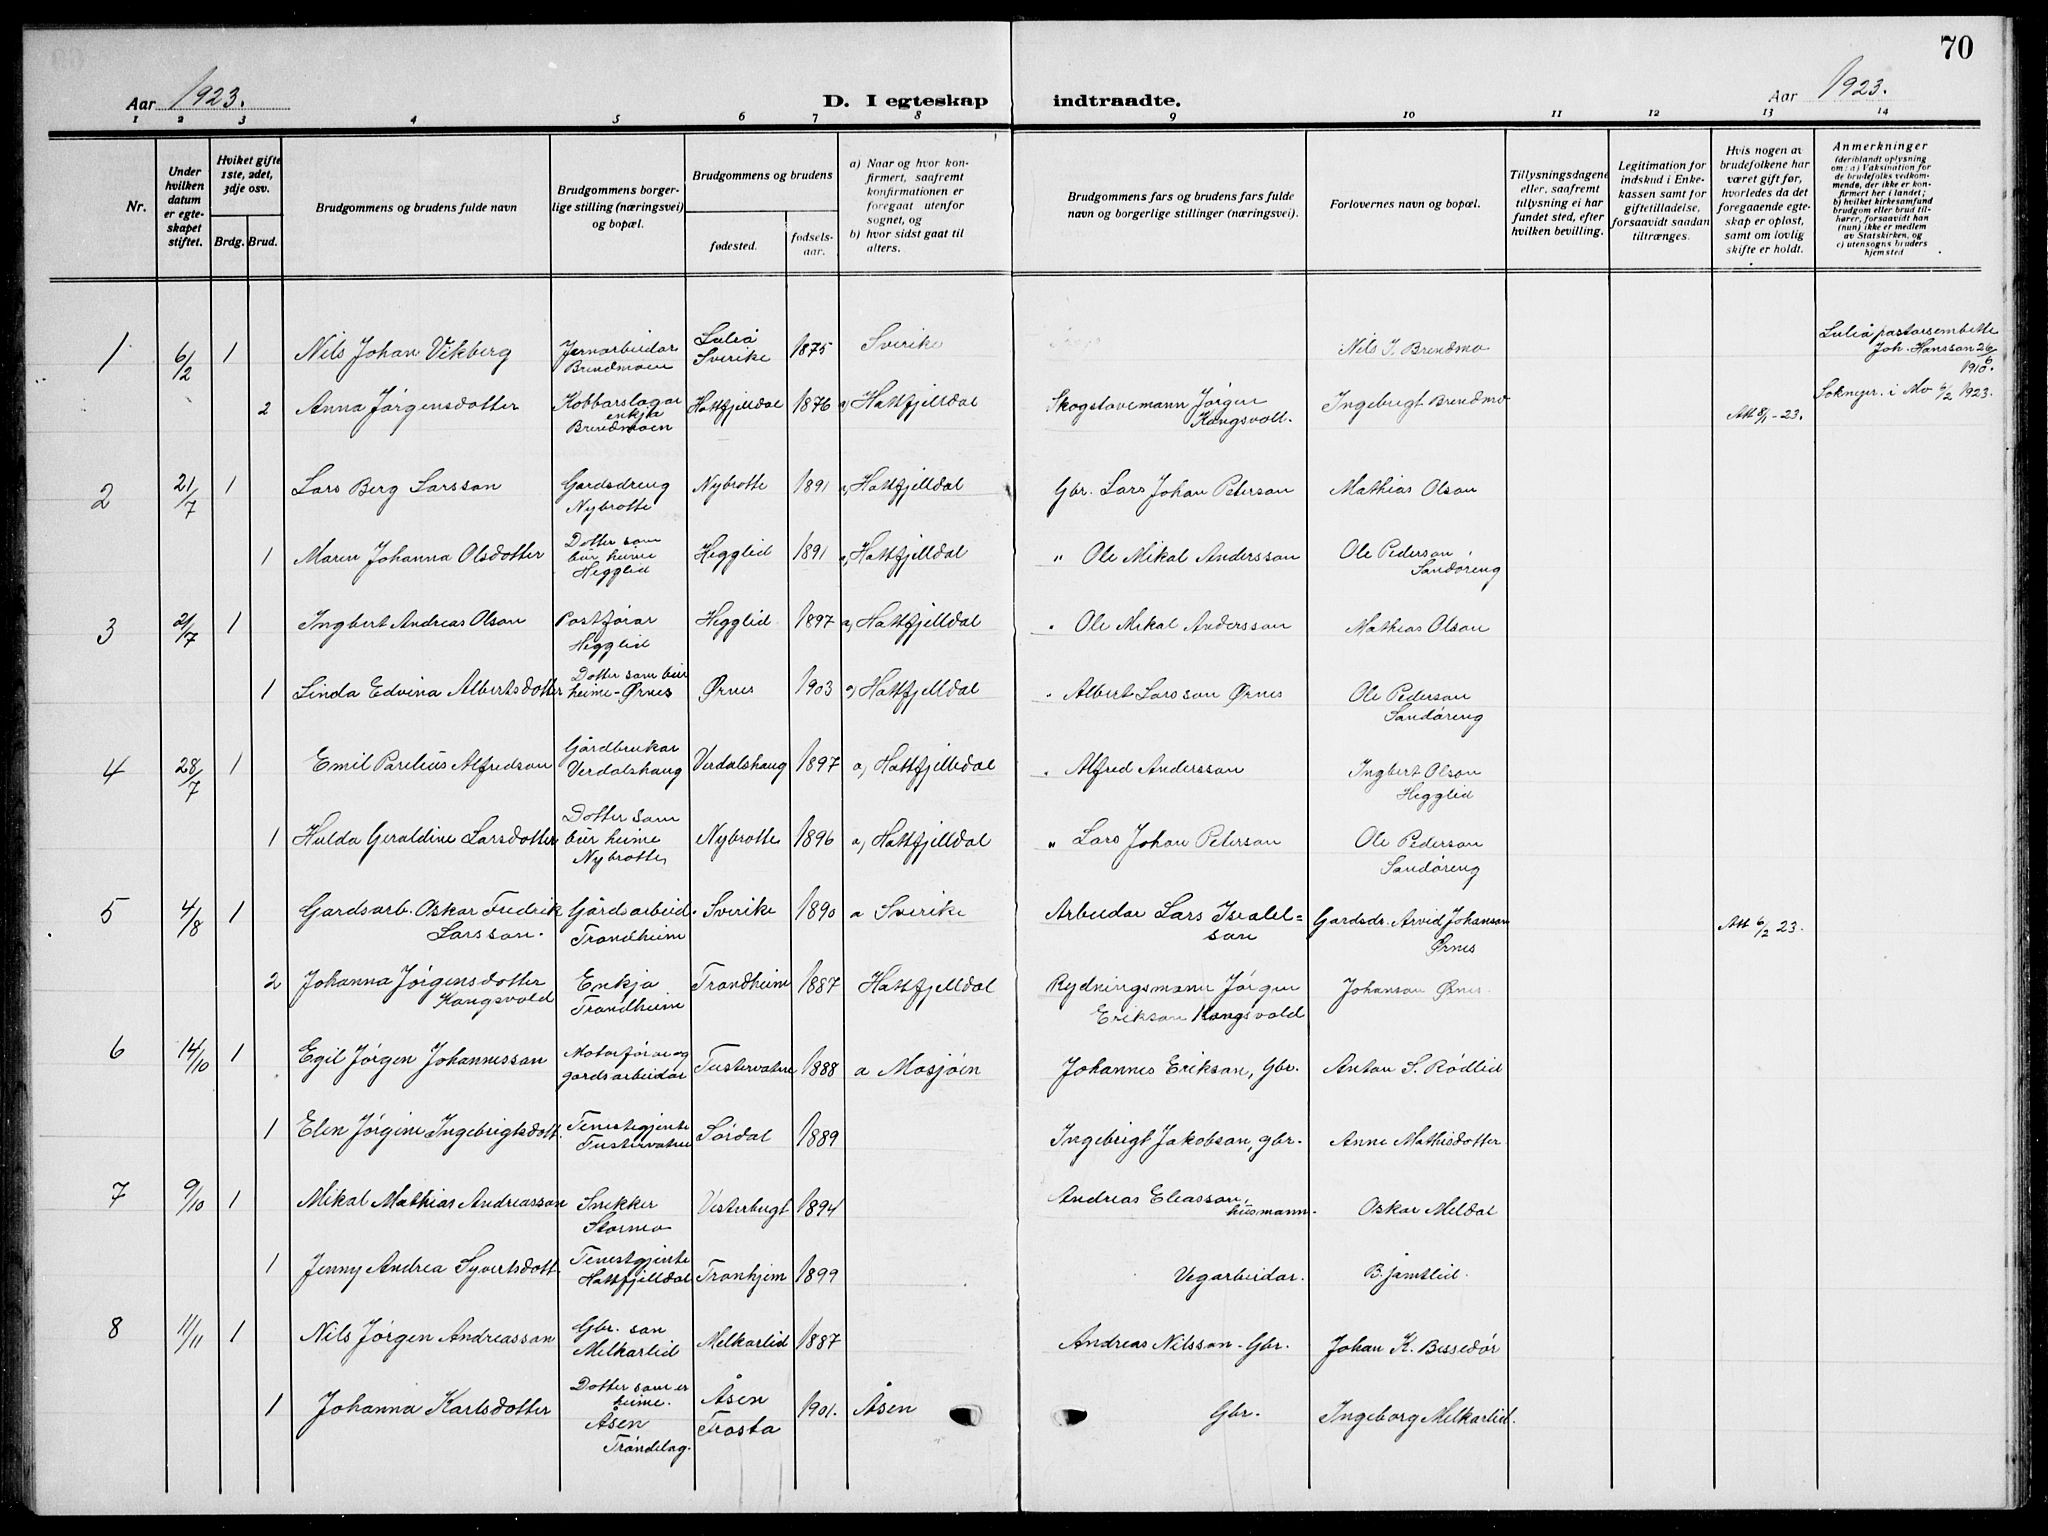 70
Aar 1923.
D. I egteskap indtraadte.
Aar 1923.
1 2 3 4 5 6 7 8 9 10 11 12 13 14
Nr.
Under hvilken datum er egteskapet stiftet.
Hvilket gifte 1ste, 2det, 3dje osv.
Brdg. Brud.
Brudgommens og brudens fulde navn
Brudgommens borgerlige stilling (næringsvei) og bopæl.
Brudgommens og brudens
fødested.
fødselsaar.
a) Naar og hvor konfirmert, saafremt konfirmationen er foregaat utenfor sognet, og
b) hvor sidst gaat til alters.
Brudgommens fars og brudens fars fulde navn og borgerlige stillinger (næringsvei).
Forlovernes navn og bopæl.
Tillysningsdagene eller, saafremt tillysning ei har fundet sted, efter hvilken bevilling.
Legitimation for indskud i Enkekassen samt for giftetilladelse, forsaavidt saadan tiltrænges.
Hvis nogen av brudefolkene har været gift før, hvorledes da det foregaaende egteskap er opløst, samt om lovlig skifte er holdt.
Anmerkninger
(deriblandt oplysning om: a) Vaksination for de brudefolks vedkommende, der ikke er konfirmert her i landet; b) hvilket kirkesamfund brudgom eller brud tilhører, forsaavidt han (hun) ikke er medlem av Statskirken, og c) utensogns bruders hjemsted
1 6/2 1 Nils Johan Vikberg Jernarbeidar Brendmoen Luleå Sverike 1875 Sverike Nils J. Brendmo Luleå pastorsembette Joh. Hansson 26/6 1910.
2 Anna Jørgensdotter Kobbarslagar enkja Brendmoen Hattfjelldal 1876 a) Hattfjelldal Skogstovemann Jørgen Kongsvold. Ingebrigt Brendmo Att 8/1-23. Sokneper. i Mo 6/2 1923.
2 21/7 1 Lars Berg Larsson Gardsdreng Nybrotte Nybrotte 1891 a, Hattfjelldal Gbr. Lars Johan Peterson Mathias Olson
1 Maren Johanna Olsdotter Dotter som bur heime Hegglid Hegglid 1891 a, Hattfjelldal " Ole Mikal Andersson Ole Pederson Sandøreng
3 21/7 1 Ingbert Andreas Olson Postførar Hegglid Hegglid 1897 a, Hattfjelldal " Ole Mikal Andersson Mathias Olson
1 Linda Edvina Albertsdotter Dotter som bur heime - Ørnes Ørnes 1903 a) Hattfjelldal " Albert Larsson Ørnes Ole Pederson Sandøreng
4 28/7 1 Emil Parelius Alfredson Gårdbrukar Verdalshaug Verdalshaug 1897 a, Hattfjelldal " Alfred Andersson Ingbert Olson Hegglid
1 Hulda Geraldine Larsdotter Dotter som bur heime Nybrotte Nybrotte 1896 a, Hattfjelldal " Lars Johan Peterson Ole Pederson Sandøreng
5 4/8 1 Gardsarb. Oskar Fredrik Larsson. Gårdsarbeid. Trondheim Sverike 1890 a Sverike Arbeidar Lars Isealel-son Gardsdr. Arvid Johanson Ørnes Att 6/2 23.
2 Johanna Jørgensdotter Kongsvold Enkja Trondheim Trondheim 1887 Hattfjelldal Rydningsmann Jørgen Erikson Kongsvold Johanson Ørnes
6 14/10 1 Egil Jørgen Johannesson Motorførar og gardsarbeidar Tustervatne 1888 a Mosjøen Johannes Erikson, Gbr. Anton S. Rødlid
1 Elen Jørgine Ingebrigtsdott. Tenestgjente Tustervatne Sørdal 1889 Ingebrigt Jakobson, gbr. Anne Mathisdotter
7 9/10 1 Mikal Mathias Andreasson Snekker Stormo Vesterbugt 1894 Andreas Eleasson, husmann. Oskar Meldal
1 Jenny Andrea Syvertsdott. Tenestgjente Hattfjelldal Tronhjem 1899 Vegarbeidar. B. Jamtlid.
8 11/11 1 Nils Jørgen Andreasson Gbr. son Melkarlid Melkarlid 1887 Andreas Nilsson - Gbr. Johan K. Bessedør
1 Johanna Karlsdotter Dotter som er heime. Åsen Trøndelag. Åsen Frosta 1901. Åsen Gbr. Ingeborg Melkarlid.